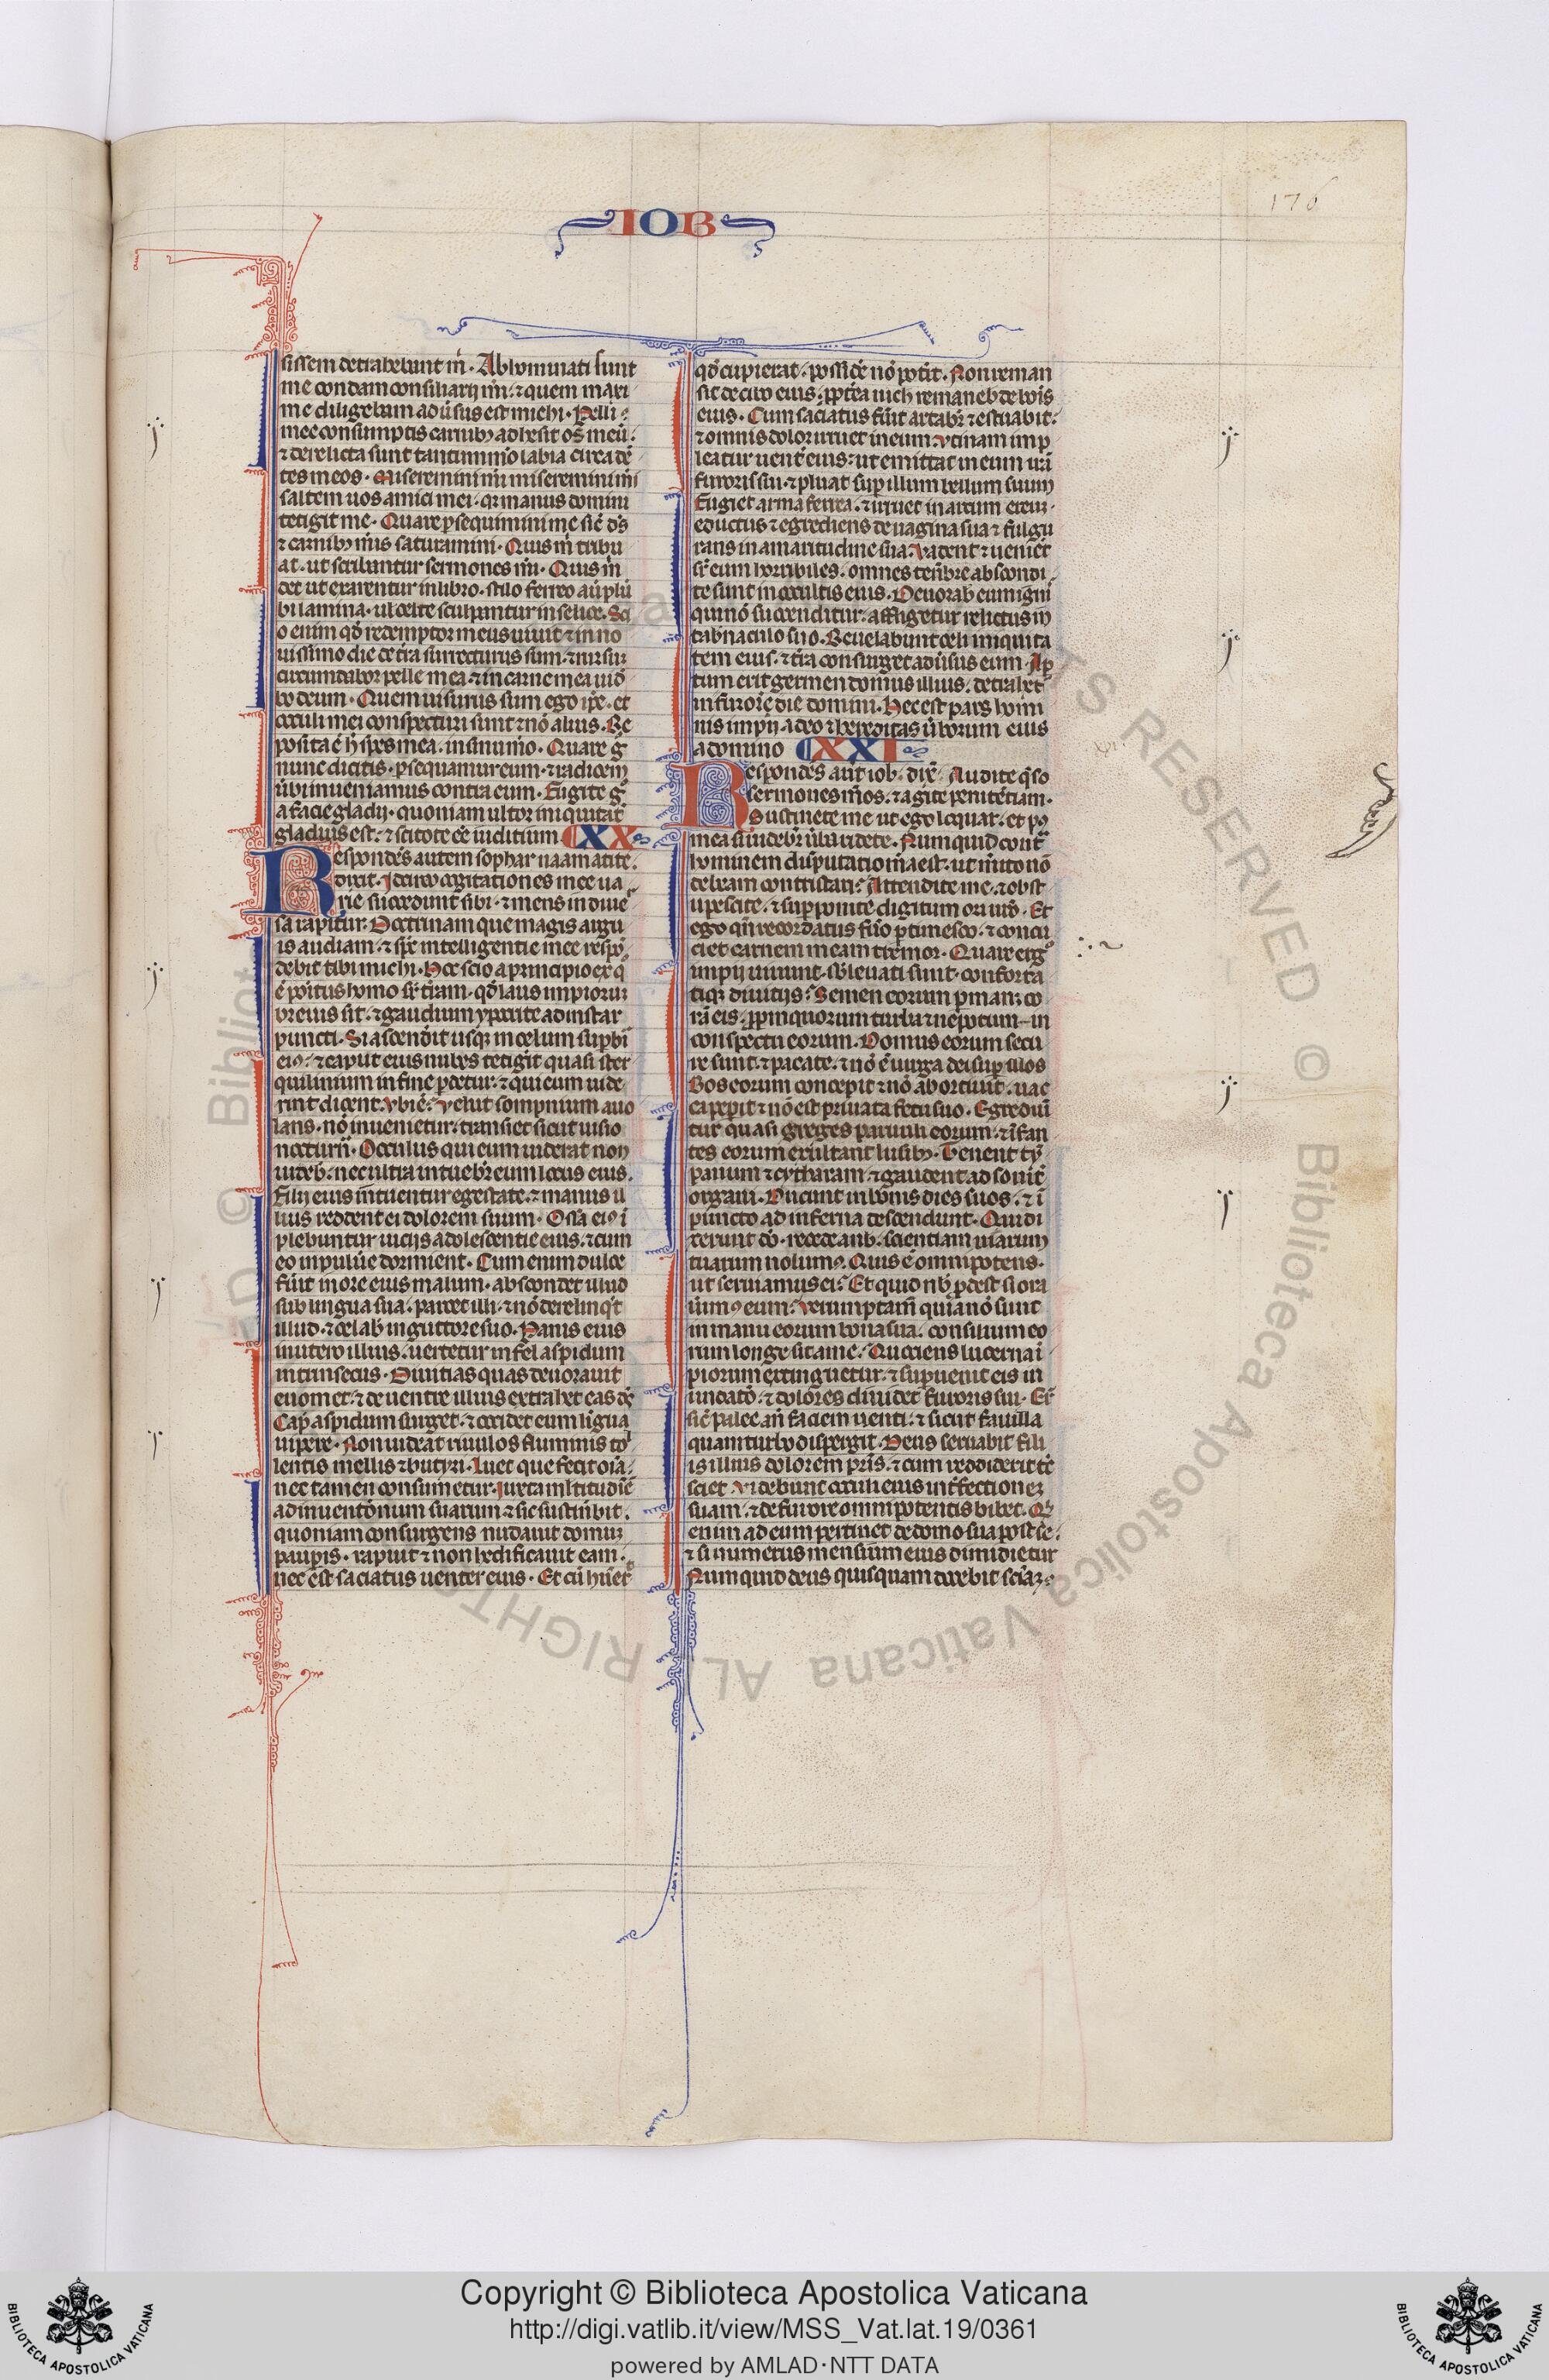 176
IOB
sissem detrahebant m̄. Abhominati sunt
me condam consiliarij mī. ⁊ quem maxi
me diligebam aduͥsus est michi. Pelli
mee consumptis carnibꝫ adhesit os meū.
⁊ derelicta sunt tantummo labia circa dē
tes meos. Miseremini mī miseremini mī
saltem uos amici mei. qꝛ manus domini
tetigit me. Quare ꝑsequimini me sic̄ ds̄
⁊ carnibꝫ mīs saturamini. Quis m̄ tribu
at. ut scribantur sermones mī. Quis m̄
det ut exarentur in libro. stilo ferreo au̇ plū
bi lamina. ul̓ celte sculpantur in selice. Sci
o enim qd̓ redemptor meus uiuit ⁊ in no
uissimo die de t̓ra surrecturus sum. ⁊ rursuꝫ
circumdabor pelle mea ⁊ in carne mea uid̓
bo deum. Quem uisurus sum ego ip̄e. et
occuli mei conspecturi sunt ⁊ nō alius. Re
posita ē h̓ spes mea. in sinu m̄o. Quare g̊
nunc dicitis. ꝑsequamur eum. ⁊ radicem
u̇bi inueniamus contra eum. Fugite g̊
a facie gladij. quoniam ultor iniquitat̄
gladius est. ⁊ scitote eē iuditium XX
Respondēs autem sophar naamatite.
dixit. Idcirco cogitationes mee ua
rie succedunt sibi. ⁊ mens in diue
sa rapitur. Doctrinam que magis argu
is audiam. ⁊ sp̄c intelligentie mee respō
debit tibi michi. Hoc scio a principio ex q̊
ē positus homo sr̄ t̓ram. qd̓ laus impioruꝫ
breuis sit. ⁊ gaudium ypocrite ad instar
puncti. Si ascendit̓ usqꝫ in celum suꝑbi
eiꝰ. ⁊ caput eius nubes tetigit̓ quasi ster
quilinium in fine ꝑdetur. ⁊ qui eum uide
rint dicent. Vbi ē? Velut sompnium auo
lans. nō inuenietur. transiet sicut uisio
nocturn̄. Occulus qui eum uiderat non
uideb̓. nec ultra intueb̓r eum locus eius.
Filij eius inͣtuentur egestate. ⁊ manus il
lius reddent ei dolorem suum. Ossa eiꝰ ī
plebuntur uicijs adolescentie eius. ⁊ cum
eo in puluͥe dormient. Cum enim dulce
fuͥit in ore eius malum. abscondet illud
sub lingua sua. parcet illi. ⁊ nō derelinqͥt
illud. ⁊ celab̓ in gutture suo. Panis eius
in utero illius. uertetur in fel aspidum
intrinsecus. Diuitias quas deuorauit
euomet. ⁊ de uentre illius extrahet eas ds̄
Cap̄ aspidum surget. ⁊ occidet eum līgua
uipere. Non uideat riuulos fluminis to
lentis mellis ⁊ butyri. Luet que fecit oīa.
nec tamen consumetur. Iuxta ml̓titudīē
adinuentōnum suarum ⁊ sic sustin̓bit.
quoniam consurgens nudauit domuꝫ
pauꝑis. rapuit ⁊ non hedificauit eam.
nec est saciatus uenter eius. Et cū hūer̄
qd̓ cupierat. possidē nō pot̓it. Non reman
sit de cibo eius. ꝓpt̓ea nich remaneb̓ de bōis
eius. Cum saciatus fuͥit artabr̄ ⁊ estuabit.
⁊ omnis dolor irruet in eum. Vtinam imp
leatur uent̓ eius. ut emittat in eum irā
furoris sui. ⁊ pluat suꝑ illum bellum suum
Fugiet arma ferrea. ⁊ irruet in arcum ereuꝫ.
eductus ⁊ egrediens de uagina sua ⁊ fulgu
rans in amaritudine sua. Vadent ⁊ uenient̓
sr̄ eum horribiles. omnes ten̓bre abscondi
te sunt in occultis eius. Deuorab̓ eum igni
qui nō succenditur. affligetur relictus in
tab̓naculo suo. Reuelabunt celi iniquita
tem eius. ⁊ t̓ra consurget aduͥsus eum. Ap
tum erit germen domus illius. detrahet̓
in furore die domini. Hec est pars homi
nis impij. a deo ⁊ hereditas u̇borum eius
a domino XXI
Respondēs aūt iob. dix̄. Audite qͤso
sermones mōs. ⁊ agite penitētiam.
Sustinete me ut ego loquar. et pꝰ
mea si uidebr̄ u̇ba ridete. Numquid cont̓
hominem disputatio m̄a est. ut m̓ito nō
debeam contristari? Attendite me. ⁊ obst
upescite. ⁊ suꝑponite digitum ori urō. Et
ego qn̄ recordatus fuͥo ꝑtimesco. ⁊ concu
ciet carnem meam tremor. Quare erg̊
impij uiuunt. sb̓leuati sunt. conforta
tiqꝫ diuitijs? Semen eorum ꝑmanꝫ co
rā eis. ꝓpinquorum turba ⁊ nepotum in
conspectu eorum. Domus eorum secu
re sunt. ⁊ pacate. ⁊ nō ē uirga dei suꝑ illos
Bos eorum concepit ⁊ nō abortiuit. uac
ca peꝑit ⁊ nō est priuata fetu suo. Egrediū
tur quasi greges paruuli eorum. ⁊ īfan
tes eorum exultant lusibꝫ. Tenent tȳ
panum ⁊ cytharam. ⁊ gaudent ad sonit̄
organi. Ducunt in bonis dies suos. ⁊ ī
puncto ad inferna descendunt. Qui di
xerunt dō. recede a nb̓. scientiam uiarum
tuarum nolumꝰ. Quis ē omnipotens.
ut seruiamus ei? Et quid nb̓ ꝓdest si ora
uͥimꝰ eum? Verumptam̄ quia nō sunt
in manu eorum bona sua. consilium eo
rum longe sit a me. Quociens lucerna ī
piorum extinguetur. ⁊ suꝑueniet eis in
undatō. ⁊ dolores diuidet furoris sui. Er̄t
sic̄ palee an̄ faciem uenti. ⁊ sicut fauilla
quam turbo dispergit. Deus seruabit fili
is illius dolorem pris̄. ⁊ cum reddiderit tc̄
sciet. Videbunt occuli eius int̓fectioneꝫ
suam. ⁊ de furore omnipotentis bibet. Qd̓
enim ad eum pertinet de domo sua post se.
⁊ si numerus mensium eius dimidietur
Numquid deus quisquam docebit sciāꝫ.
Copyright © Biblioteca Apostolica Vaticana
http://digi.vatlib.it/view/MSS_Vat.lat.19/0361
powered by AMLAD·NTT DATA
BIBLIOTECA APOSTOLICA VATICANA
BIBLIOTECA APOSTOLICA VATICANA